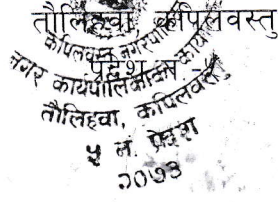 तौलिहवा, कपिलवस्तु
प्रदेश नं.
कपिलवस्तु नगरपालिका
नगर कार्यपालिकाको कार्यालय
तौलिहवा, कपिलवस्तु
५ नं. प्रदेश
२०७३